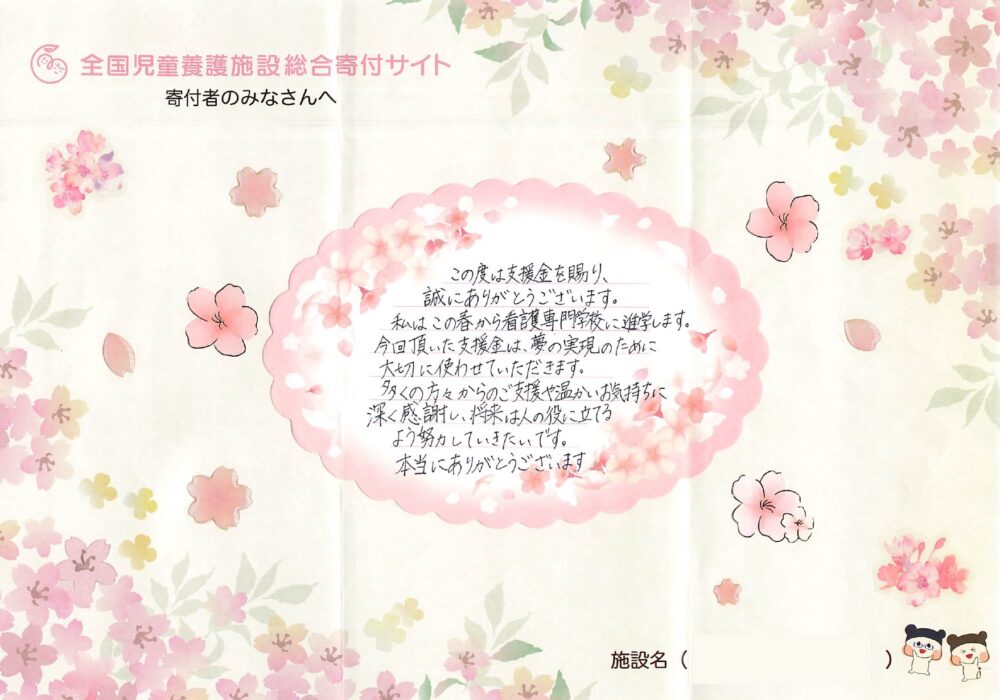 全国児童養護施設総合寄付サイト
寄付者のみなさんへ
この度は支援金を賜り、
誠にありがとうございます。
私はこの春から看護専門学校に進学します。
今回頂いた支援金は、夢の実現のために
大切に使わせていただきます。
多くの方々からのご支援や温かいお気持ちに
深く感謝し、将来は人の役に立てる
よう努力していきたいです。
本当にありがとうございます
施設名（　　　）